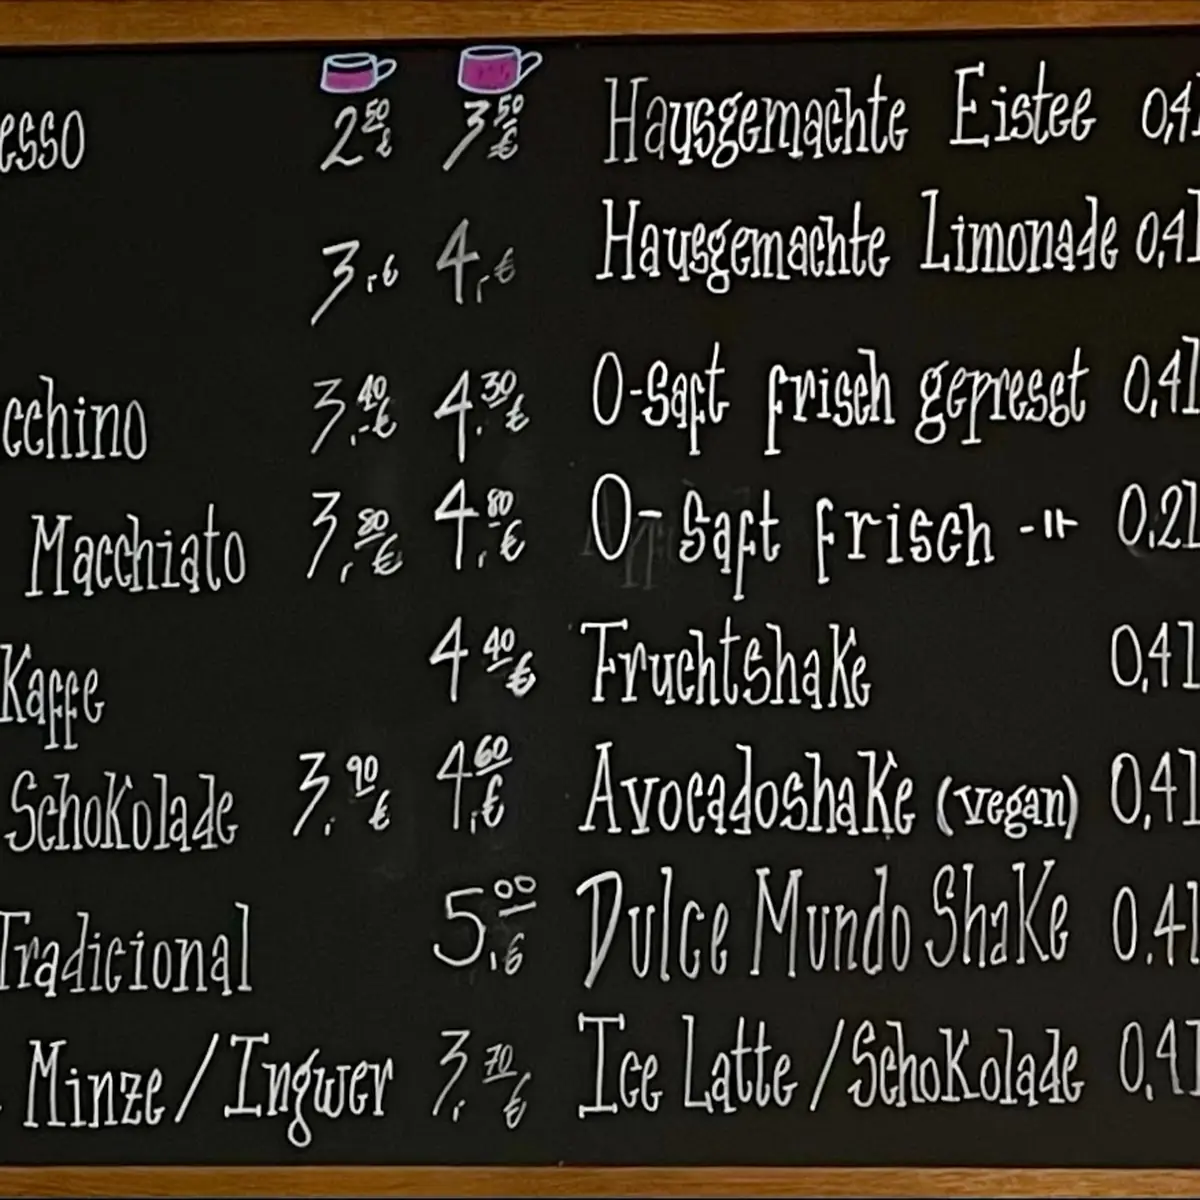 esso 2,50 € 3,50 €
3,- € 4,- €
cchino 3,40 € 4,30 €
Macchiato 3,80 € 4,80 €
Kaffe 4 40 €
Schokolade 3,90 € 4,60 €
Tradicional 5,00 €
Minze / Ingwer 3,70 €
Hausgemachte Eistee 0,4l
Hausgemachte Limonade 0,4l
O-Saft frisch gepresst 0,4l
O-Saft frisch -"- 0,2l
Fruchtshake 0,4l
Avocadoshake (vegan) 0,4l
Dulce Mundo Shake 0.4l
Ice Latte / Schokolade 0,4l